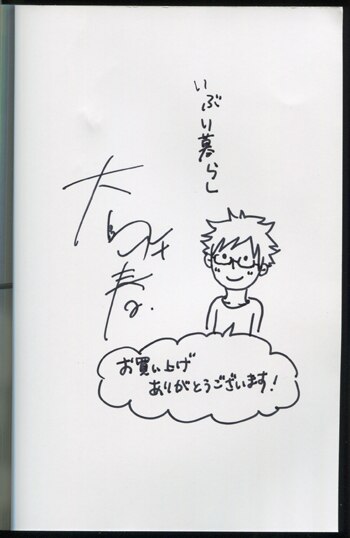 いぶり暮らし
大島千春
お買い上げ
ありがとうございます!